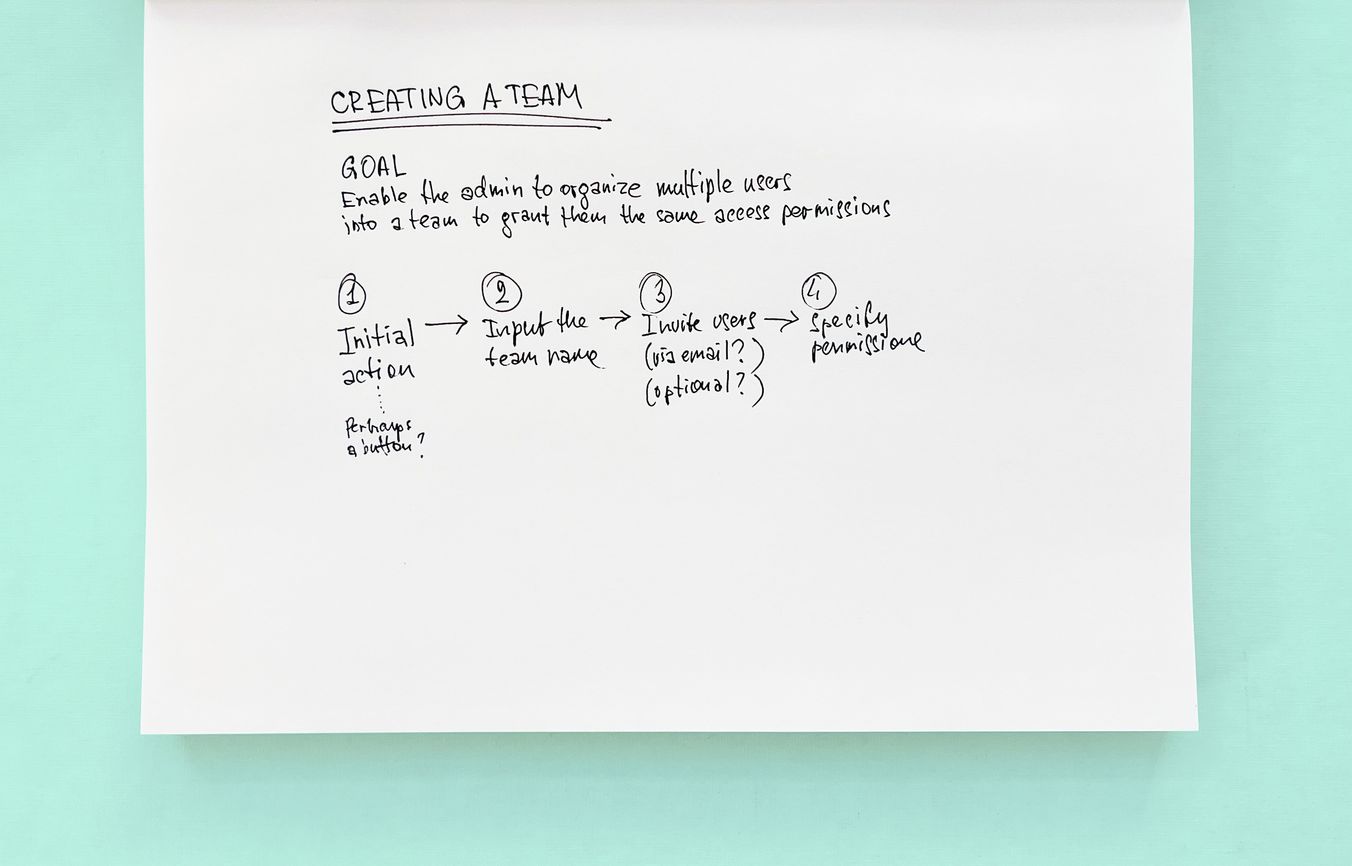 CREATING A TEAM
GOAL
Enable the admin to organize multiple users
into a team to grant them the same access permissions
1
Initial
action
Perhaps
a button?
2
Input the
team name
3
Invite users
(via email?)
(optional?)
4
Specify
permissions